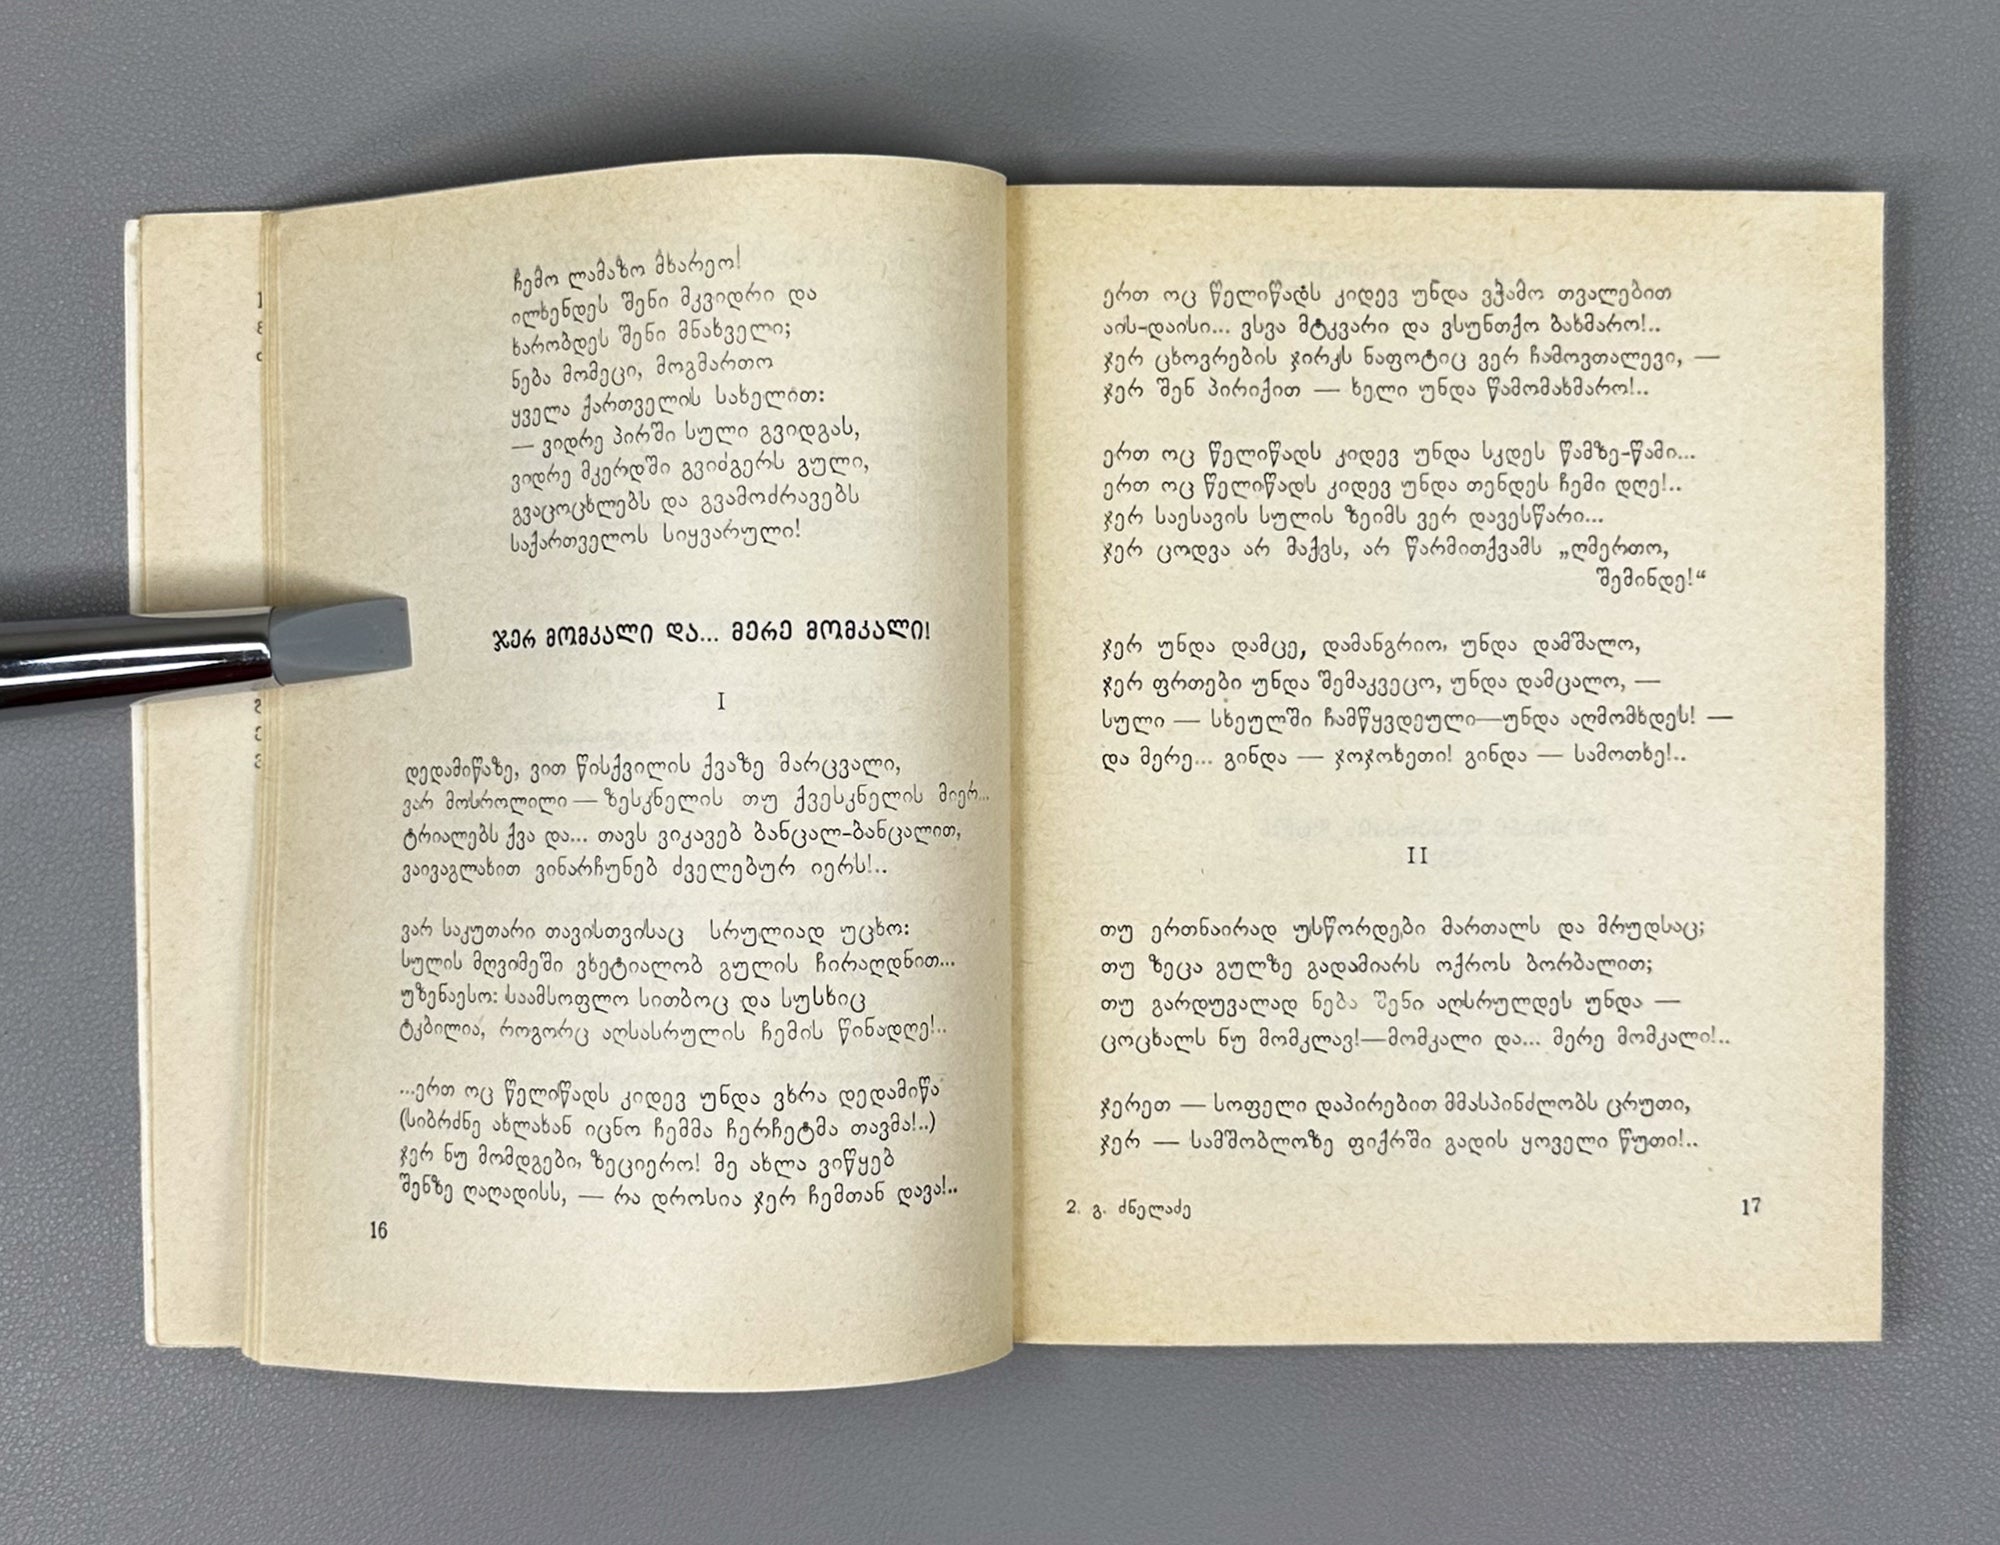 ჩემო ლამაზო მხარეო!
ილხენდეს შენი მკვიდრი და
ხარობდეს შენი მნახველი;
ნება მომეცი, მოგმართო
ყველა ქართველის სახელით:
— ვიდრე პირში სული გვიდგას,
ვიდრე მკერდში გვიძგერს გული,
გვაცოცხლებს და გვამოძრავებს
საქართველოს სიყვარული!
ჯერ მომკალი და... მერე მომკალი!
I
დედამიწაზე, ვით წისქვილის ქვაზე მარცვალი,
ვარ მოსროლილი — ზესკნელის თუ ქვესკნელის მიერ...
ტრიალებს ქვა და... თავს ვიკავებ ბანცალ-ბანცალით,
ვაივაგლახით ვინარჩუნებ ძველებურ იერს!..
ვარ საკუთარი თავისთვისაც სრულიად უცხო:
სულის მღვიმეში ვხეტიალობ გულის ჩირაღდნით...
უზენაესო: საამსოფლო სითბოც და სუსხიც
ტკბილია, როგორც აღსასრულის ჩემის წინადღე!..
...ერთ ოც წელიწადს კიდევ უნდა ვხრა დედამიწა
(სიბრძნე ახლახან იცნო ჩემმა ჩერჩეტმა თავმა!..)
ჯერ ნუ მომდგები, ზეციერო! მე ახლა ვიწყებ
შენზე ღაღადისს, — რა დროსია ჯერ ჩემთან დავა!..
16
ერთ ოც წელიწადს კიდევ უნდა ვჭამო თვალებით
აის-დაისი... ვსვა მტკვარი და ვსუნთქო ბახმარო!..
ჯერ ცხოვრების ჯირკს ნაფოტიც ვერ ჩამოვთალევი, —
ჯერ შენ პირიქით — ხელი უნდა წამომახმარო!..
ერთ ოც წელიწადს კიდევ უნდა სკდეს წამზე-წამი...
ერთ ოც წელიწადს კიდევ უნდა თენდეს ჩემი დღე!..
ჯერ საესავის სულის ზეიმს ვერ დავესწარი...
ჯერ ცოდვა არ მაქვს, არ წარმითქვამს „ღმერთო,
შემინდე!“
ჯერ უნდა დამცე, დამანგრიო, უნდა დამშალო,
ჯერ ფრთები უნდა შემაკვეცო, უნდა დამცალო, —
სული — სხეულში ჩამწყვდეული—უნდა აღმომხდეს! —
და მერე... გინდა — ჯოჯოხეთი! გინდა — სამოთხე!..
II
თუ ერთნაირად უსწორდები მართალს და მრუდსაც;
თუ ზეცა გულზე გადამიარს ოქროს ბორბალით;
თუ გარდუვალად ნება შენი აღსრულდეს უნდა —
ცოცხალს ნუ მომკლავ!—მომკალი და... მერე მომკალი!..
ჯერეთ — სოფელი დაპირებით მმასპინძლობს ცრუთი,
ჯერ — სამშობლოზე ფიქრში გადის ყოველი წუთი!..
2. გ. ძნელაძე
17